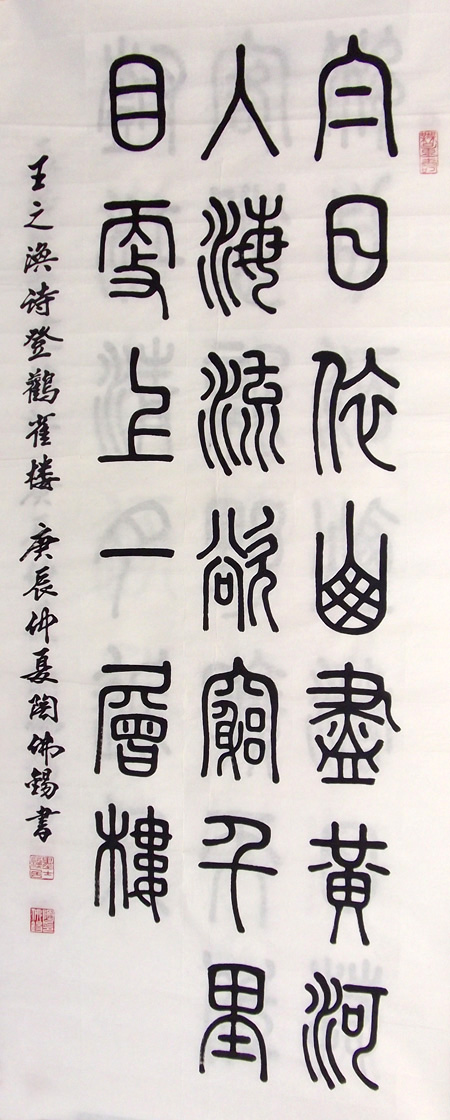 白日依山盡黃河
入海流欲窮千里
目更上一層樓
王之渙诗登鸛雀楼 庚辰仲夏陶佛錫書